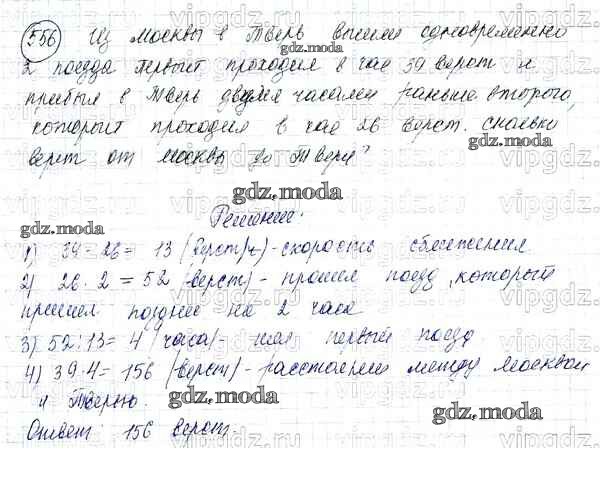 556 Из Москвы в Тверь вышли одновременно
gdz.moda
2 поезда. Первый проходил в час 39 верст и
прибыл в Тверь двумя часами раньше второго,
gdz.moda
который проходил в час 26 верст. Сколько
gdz.moda
верст от Москвы до Твери?
gdz.moda
Решение.
gdz.moda
1) 39-26= 13 (верст/ч)-скорость сближения
2) 26·2=52 (верст)- прошел поезд, который
пришел позднее на 2 часа
3) 52:13=4 (часа)- шел первый поезд.
4) 39·4=156 (верст)-расстояние между Москвой
и Тверью.
gdz.moda
gdz.moda
Ответ: 156 верст.